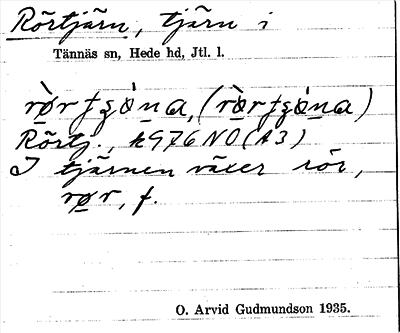 Rörtjärn, tjärn i
Tännäs sn, Hede hd, Jtl. l.
Rörtj., k976NO(A3)
I tjärnen växer rör,
rør, f.
O. Arvid Gudmundson 1935.